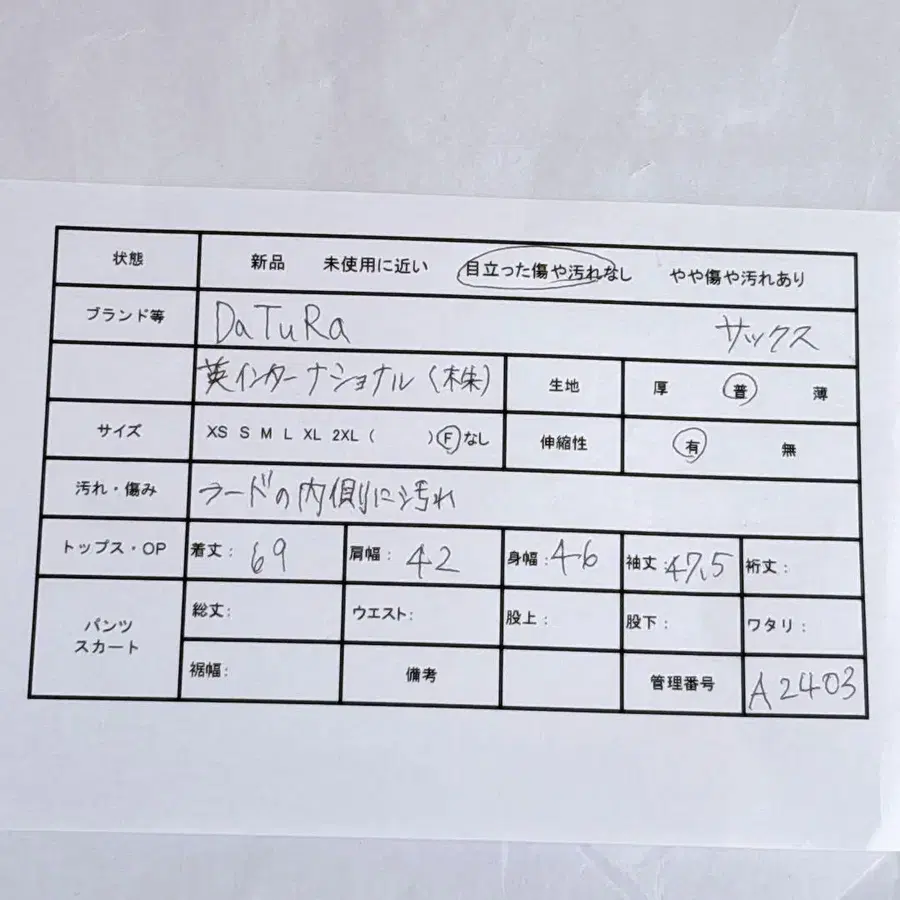 状態 新品 未使用に近い 目立った傷や汚れなし やや傷や汚れあり
ブランド等 DaTuRa サックス
英インターナショナル(株) 生地 厚 普 薄
サイズ XS S M L XL 2XL ( ) F なし 伸縮性 有 無
汚れ・傷み フードの内側に汚れ
トップス・OP 着丈: 69 肩幅: 42 身幅: 46 袖丈: 47.5 裄丈:
パンツ スカート 総丈: ウエスト: 股上: 股下: ワタリ:
裾幅: 備考 管理番号 A2403